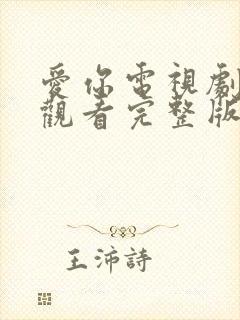 愛你電視劇
觀看完整版
王沛詩